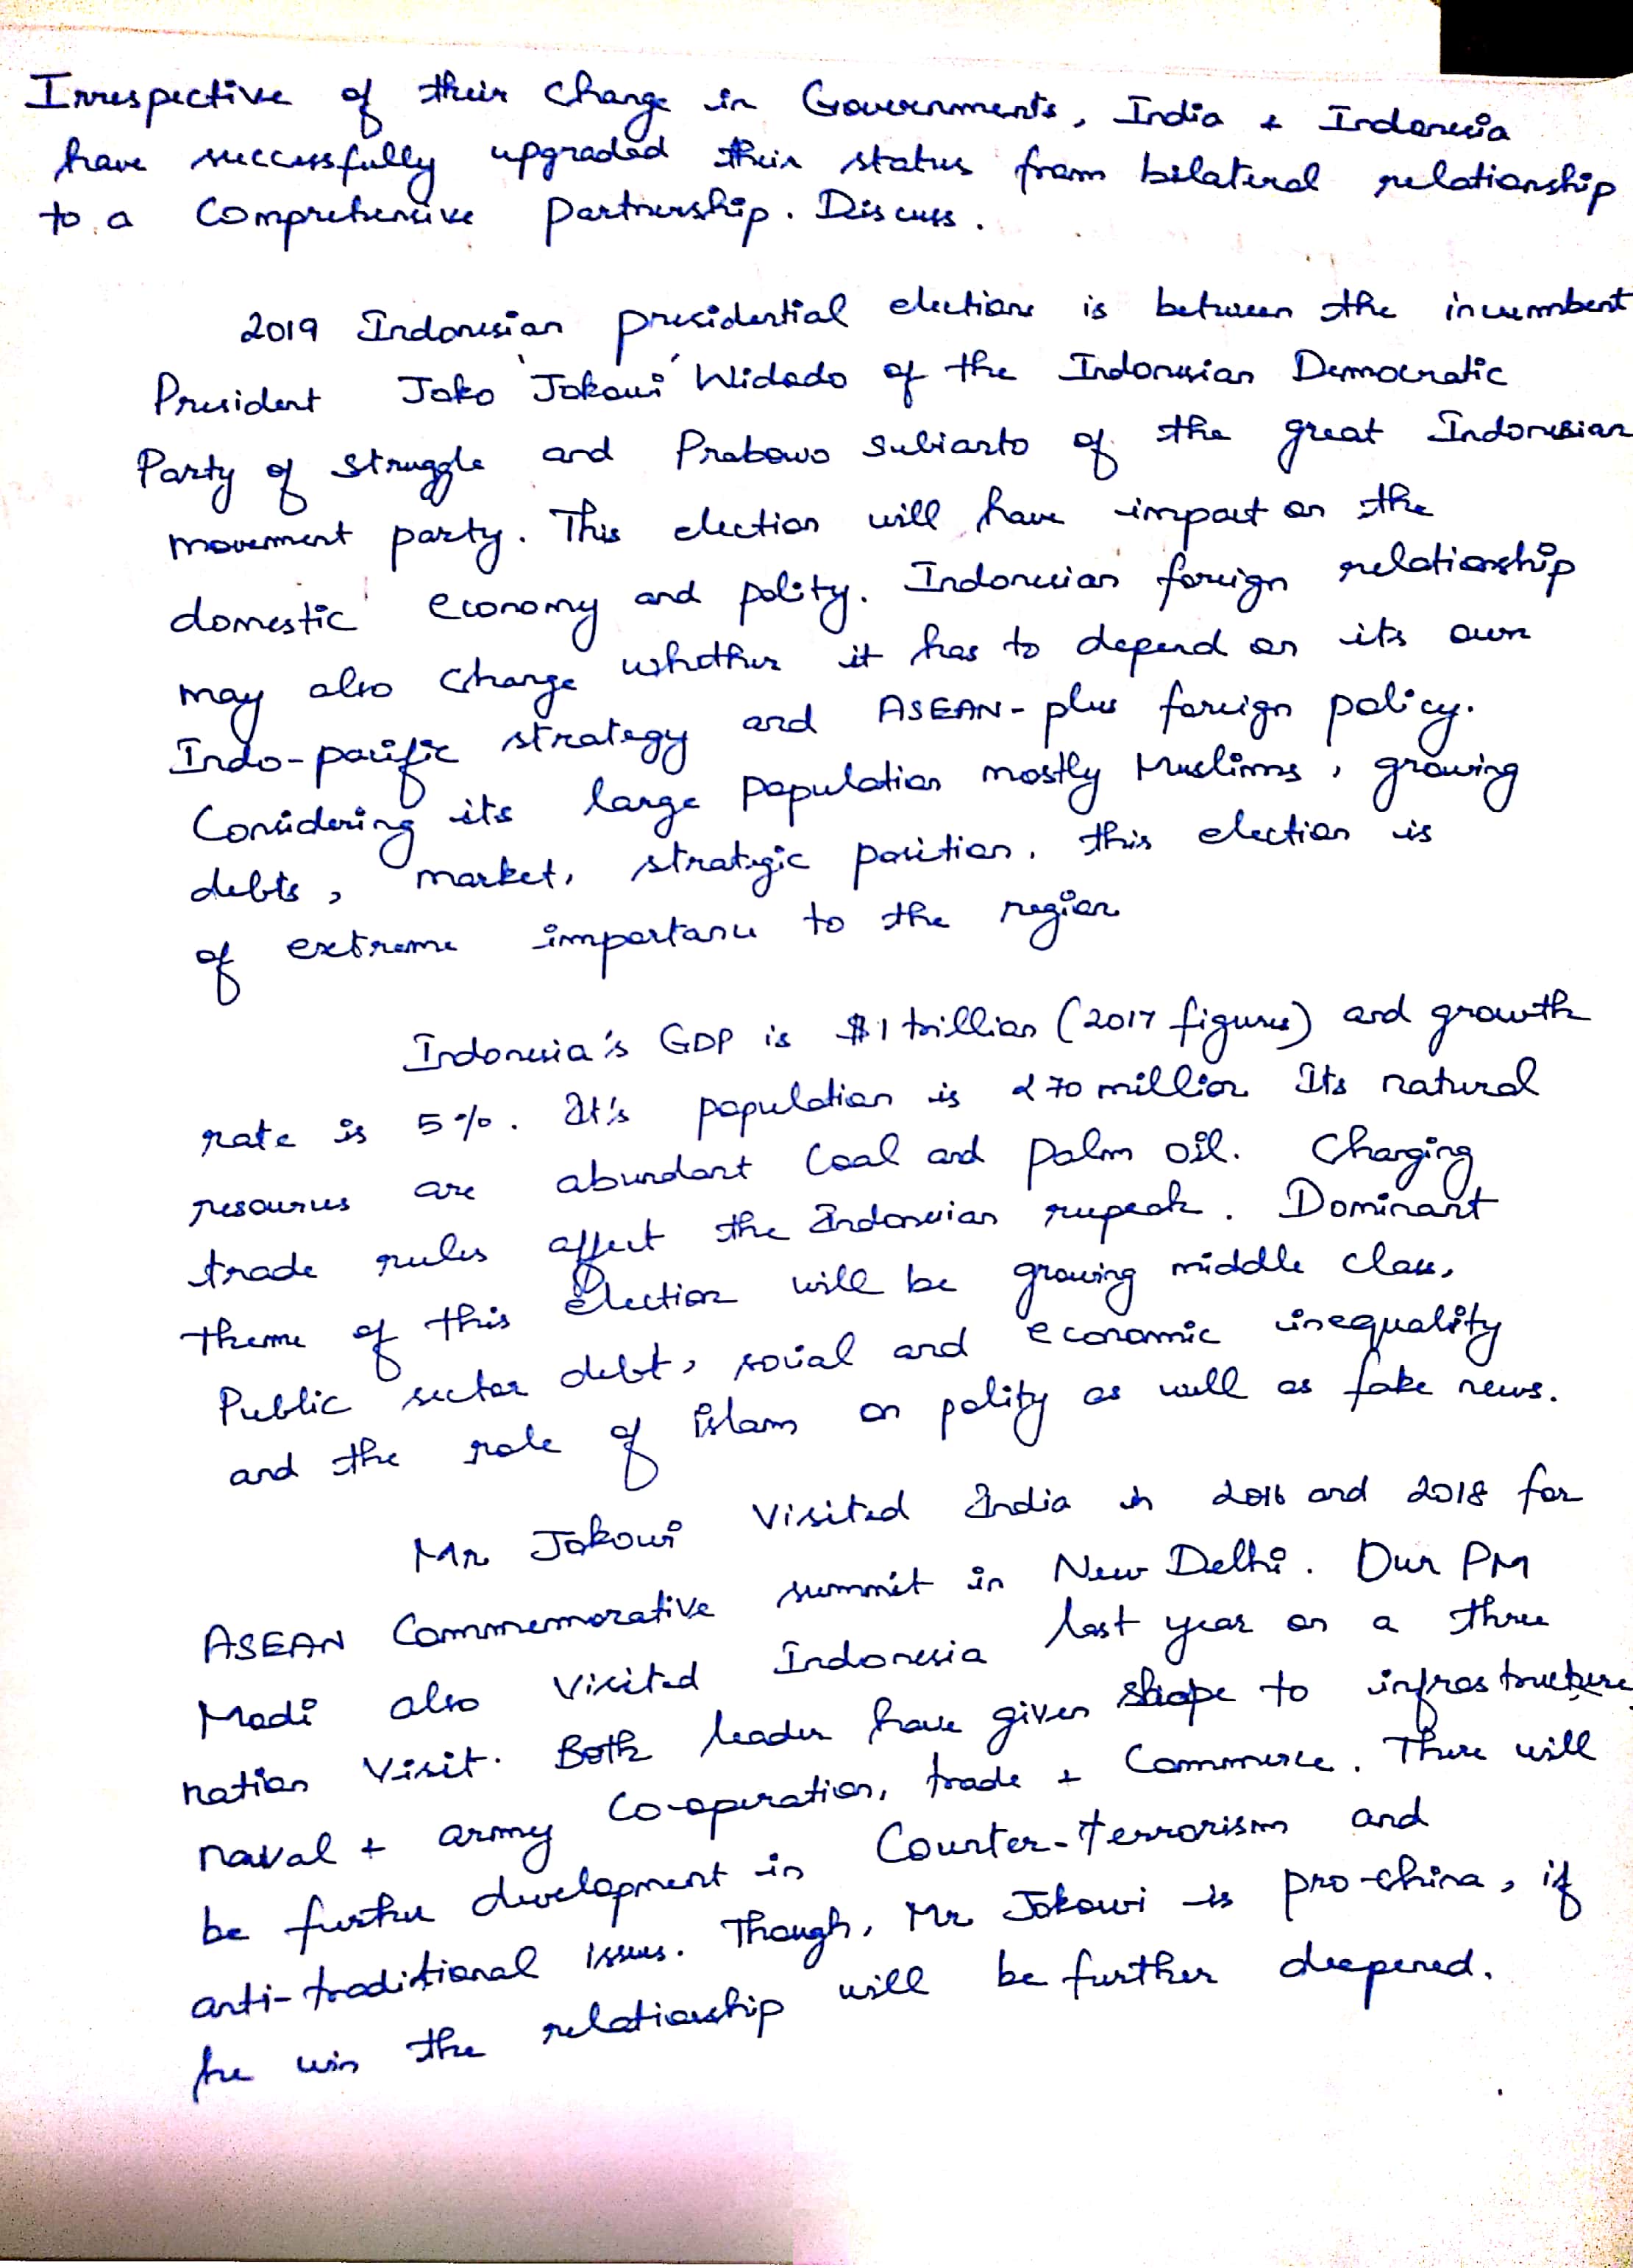 Irrespective of their change in Governments, India + Indonesia
have successfully upgraded their status from bilateral relationship
to a Comprehensive partnership. Discuss.
2019 Indonesian presidential elections is between the incumbent
President Joko 'Jokowi' Widodo of the Indonesian Democratic
Party of struggle and Prabowo Subianto of the great Indonesian
movement party. This election will have impact on the
domestic economy and polity. Indonesian foreign relationship
may also change whether it has to depend on its own
Indo-pacific strategy and ASEAN-plus foreign policy.
Considering its large population mostly Muslims, growing
debts, market, strategic position, this election is
of extreme importance to the region
Indonesia's GDP is $1 trillion (2017 figures) and growth
rate is 5%. It's population is 270 million Its natural
resources are abundant Coal and palm oil. Changing
trade rules affect the Indonesian rupeah. Dominant
theme of this election will be growing middle class,
Public sector debt, social and economic inequality
and the role of islam on polity as well as fake news.
Mr Jokowi visited India in 2016 and 2018 for
ASEAN Commemorative summit in New Delhi. Our PM
Modi also visited Indonesia last year on a three
nation visit. Both leader have given shape to infrastructure,
naval + army co-operation, trade + commerce. There will
be further development in Counter-terrorism and
anti-traditional issues. Though, Mr Jokowi is pro-china, if
he win the relationship will be further deepened.